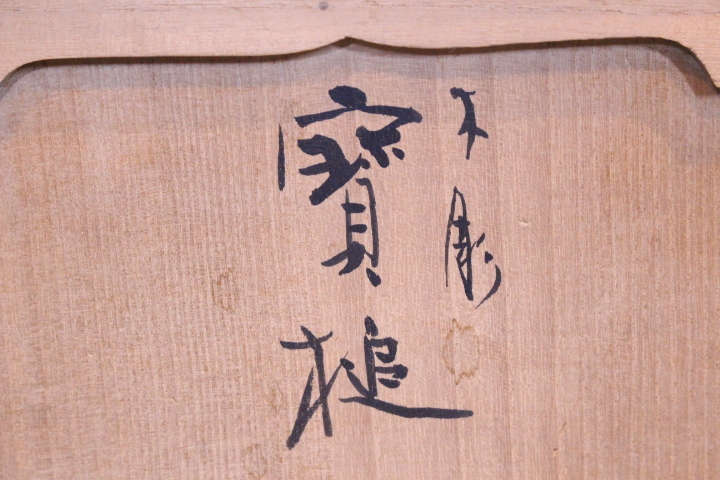 木彫
寶槌